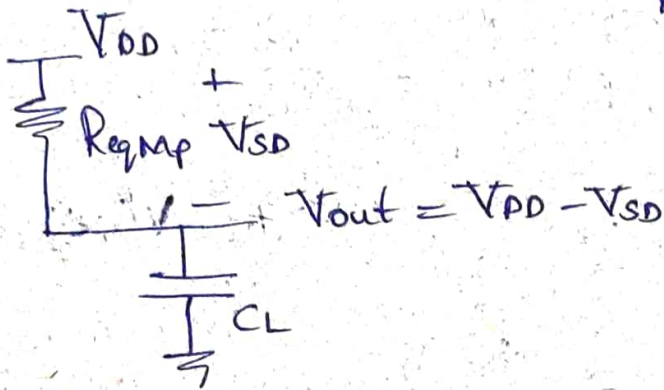 VDD
+
ReqMp VSD
- Vout = VDD - VSD
CL